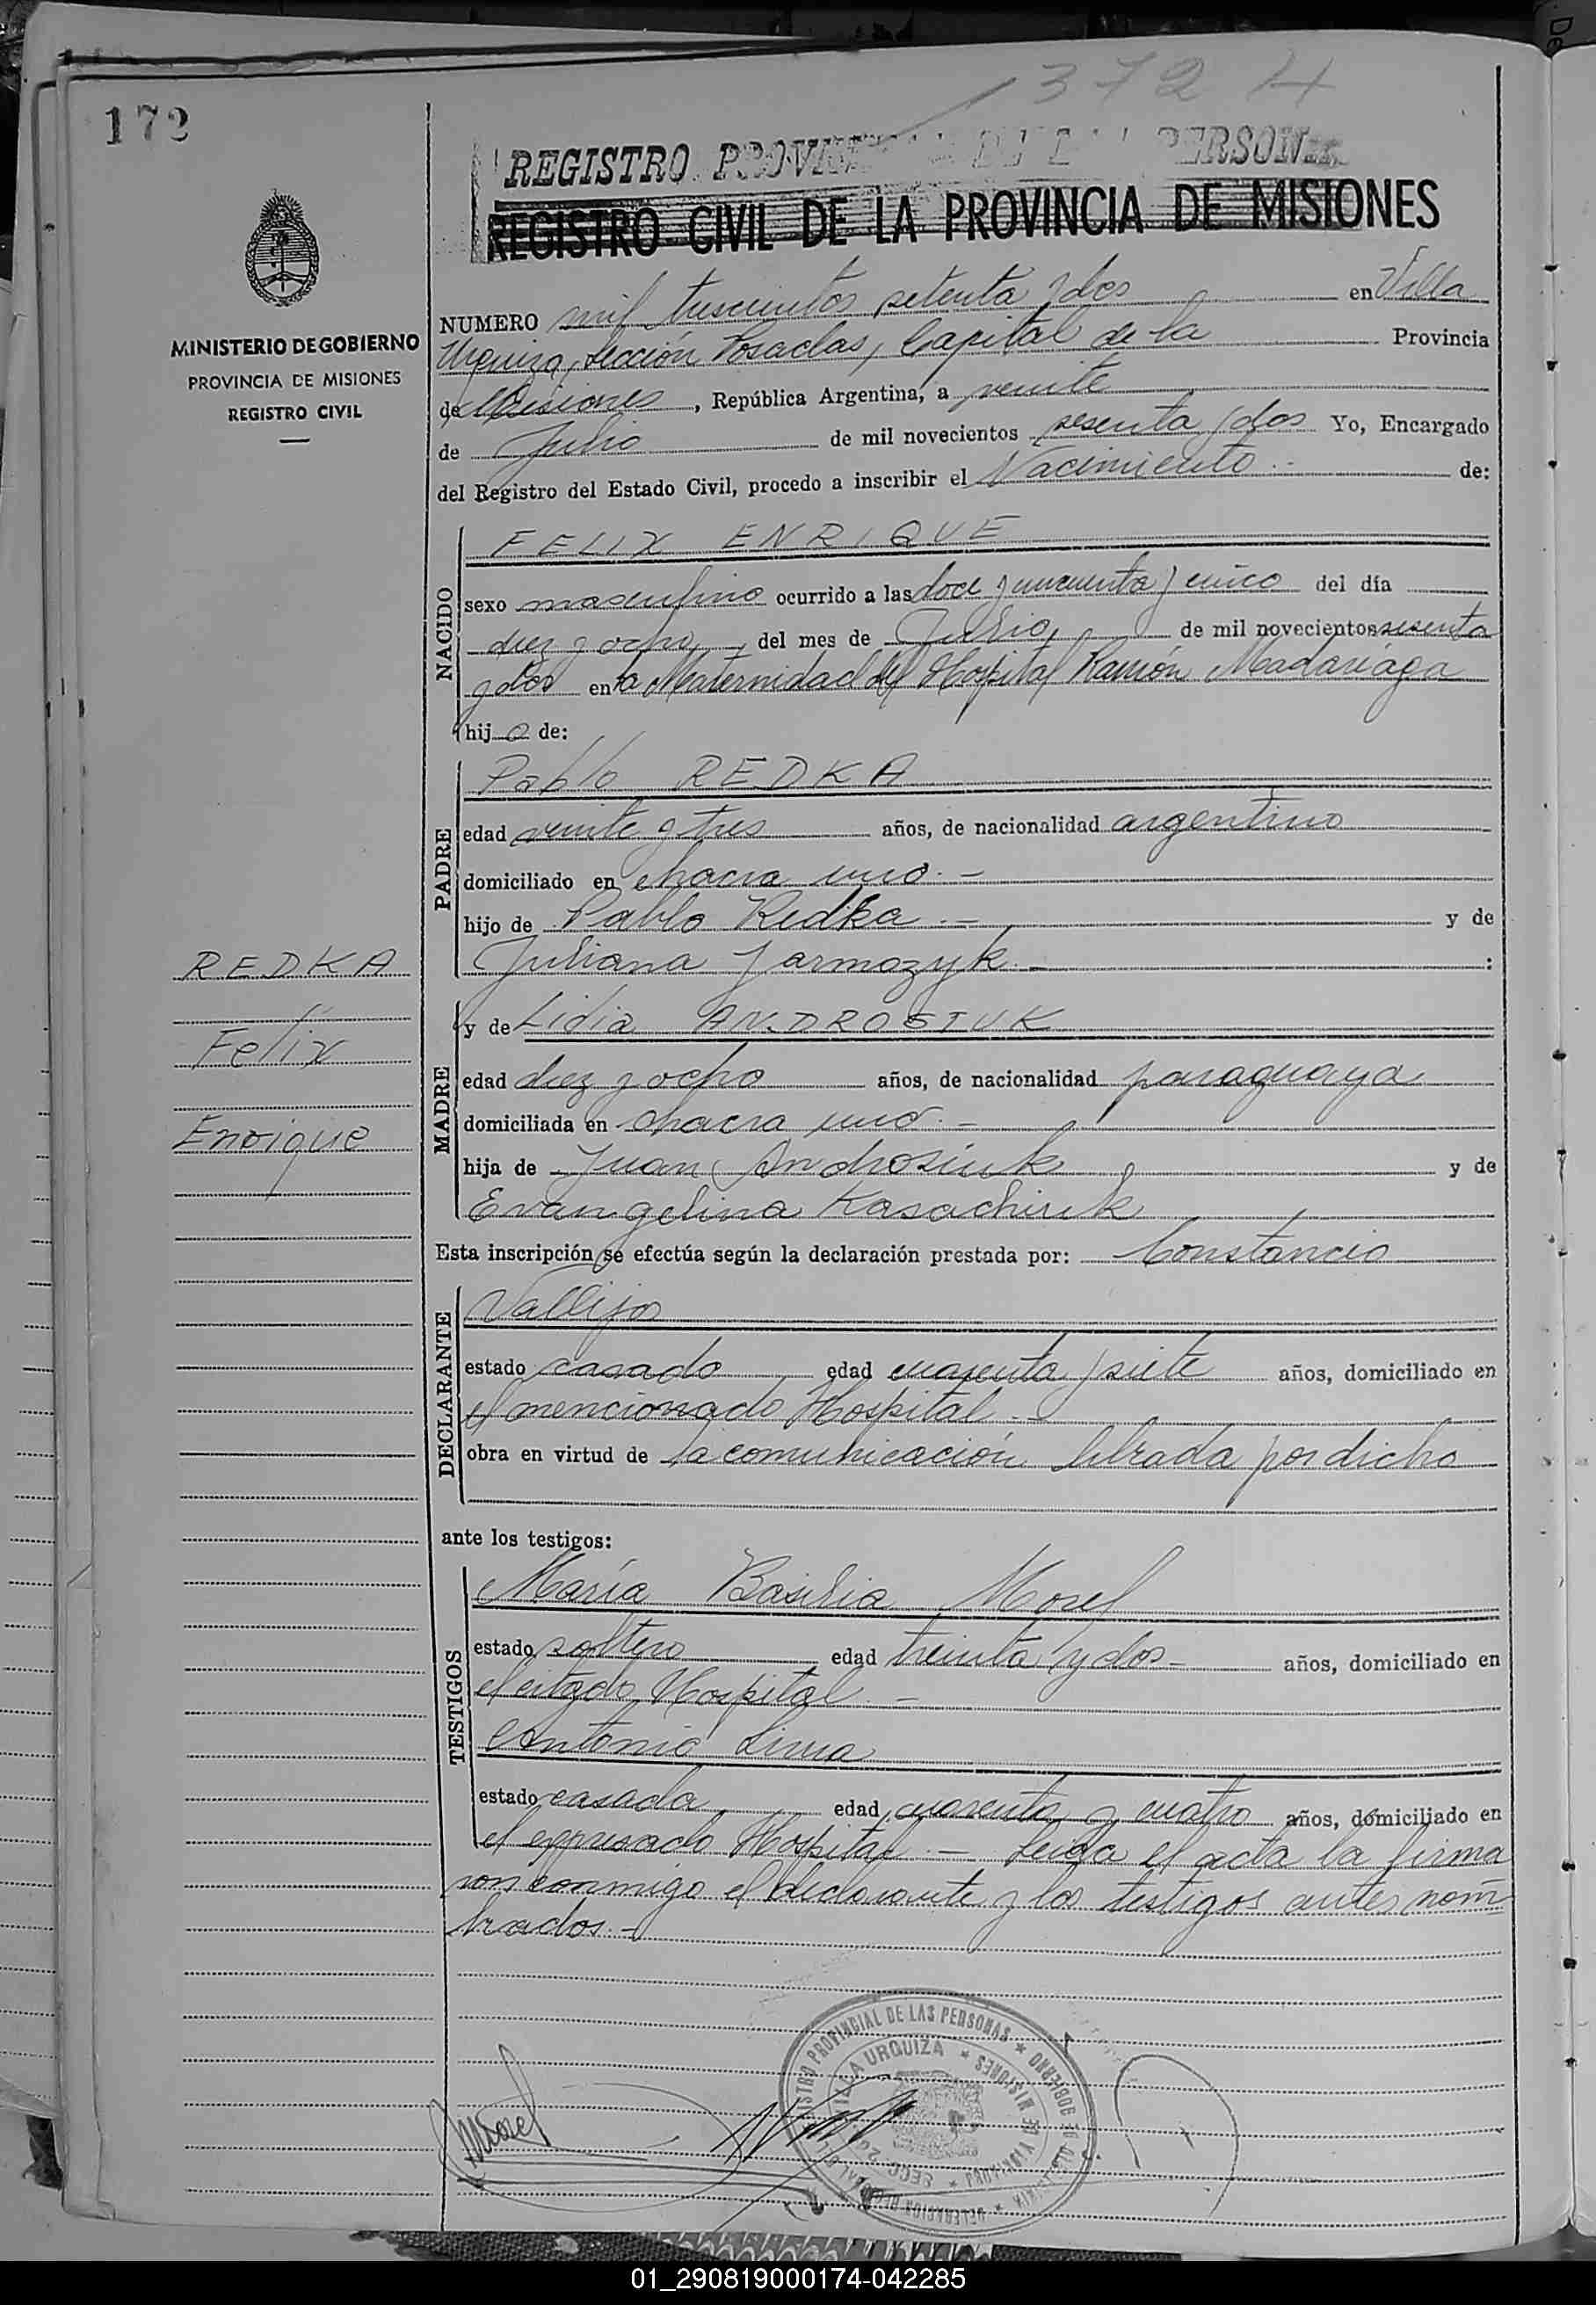 1372 H
172
REGISTRO PROVINCIAL DE LAS PERSONAS
REGISTRO CIVIL DE LA PROVINCIA DE MISIONES
MINISTERIO DE GOBIERNO
PROVINCIA DE MISIONES
REGISTRO CIVIL
NUMERO mil trescientos setenta y dos en Villa
Urquiza, Sección Posadas, Capital de la Provincia
de Misiones, República Argentina, a veinte
de Julio de mil novecientos sesenta y dos Yo, Encargado
del Registro del Estado Civil, procedo a inscribir el Nacimiento.- de:
NACIDO
FELIX ENRIQUE
sexo masculino ocurrido a las doce y cincuenta y cinco del día
diez y ocho, del mes de Julio, de mil novecientos sesenta
y dos en la Maternidad del Hospital Ramón Madariaga
hijo de:
PADRE
Pablo REDKA
edad veinte y tres años, de nacionalidad argentino
domiciliado en chacra uno.-
hijo de Pablo Redka.- y de
Juliana Jarmozyk.- :
REDKA
Felix
Enrique
MADRE
y de Lidia ANDROSIUK
edad diez y ocho años, de nacionalidad paraguaya
domiciliada en chacra uno.-
hija de Juan Androsiuk y de
Evangelina Kasachiuk
Esta inscripción se efectúa según la declaración prestada por: Constancio
DECLARANTE
Vallejos
estado casado edad cuarenta y siete años, domiciliado en
el mencionado Hospital.-
obra en virtud de la comunicación librada por dicho
ante los testigos:
TESTIGOS
María Basilia Morel
estado soltero edad treinta y dos- años, domiciliado en
el citado Hospital.-
Antonio Lima
estado casada edad cuarenta y cuatro años, domiciliado en
el expresado Hospital.- Leida el acta la firma
ron conmigo el declarante y los testigos antes nom
brados.-
REGISTRO PROVINCIAL DE LAS PERSONAS ★
VILLA URQUIZA ★ MISIONES
Morel
01_290819000174-042285